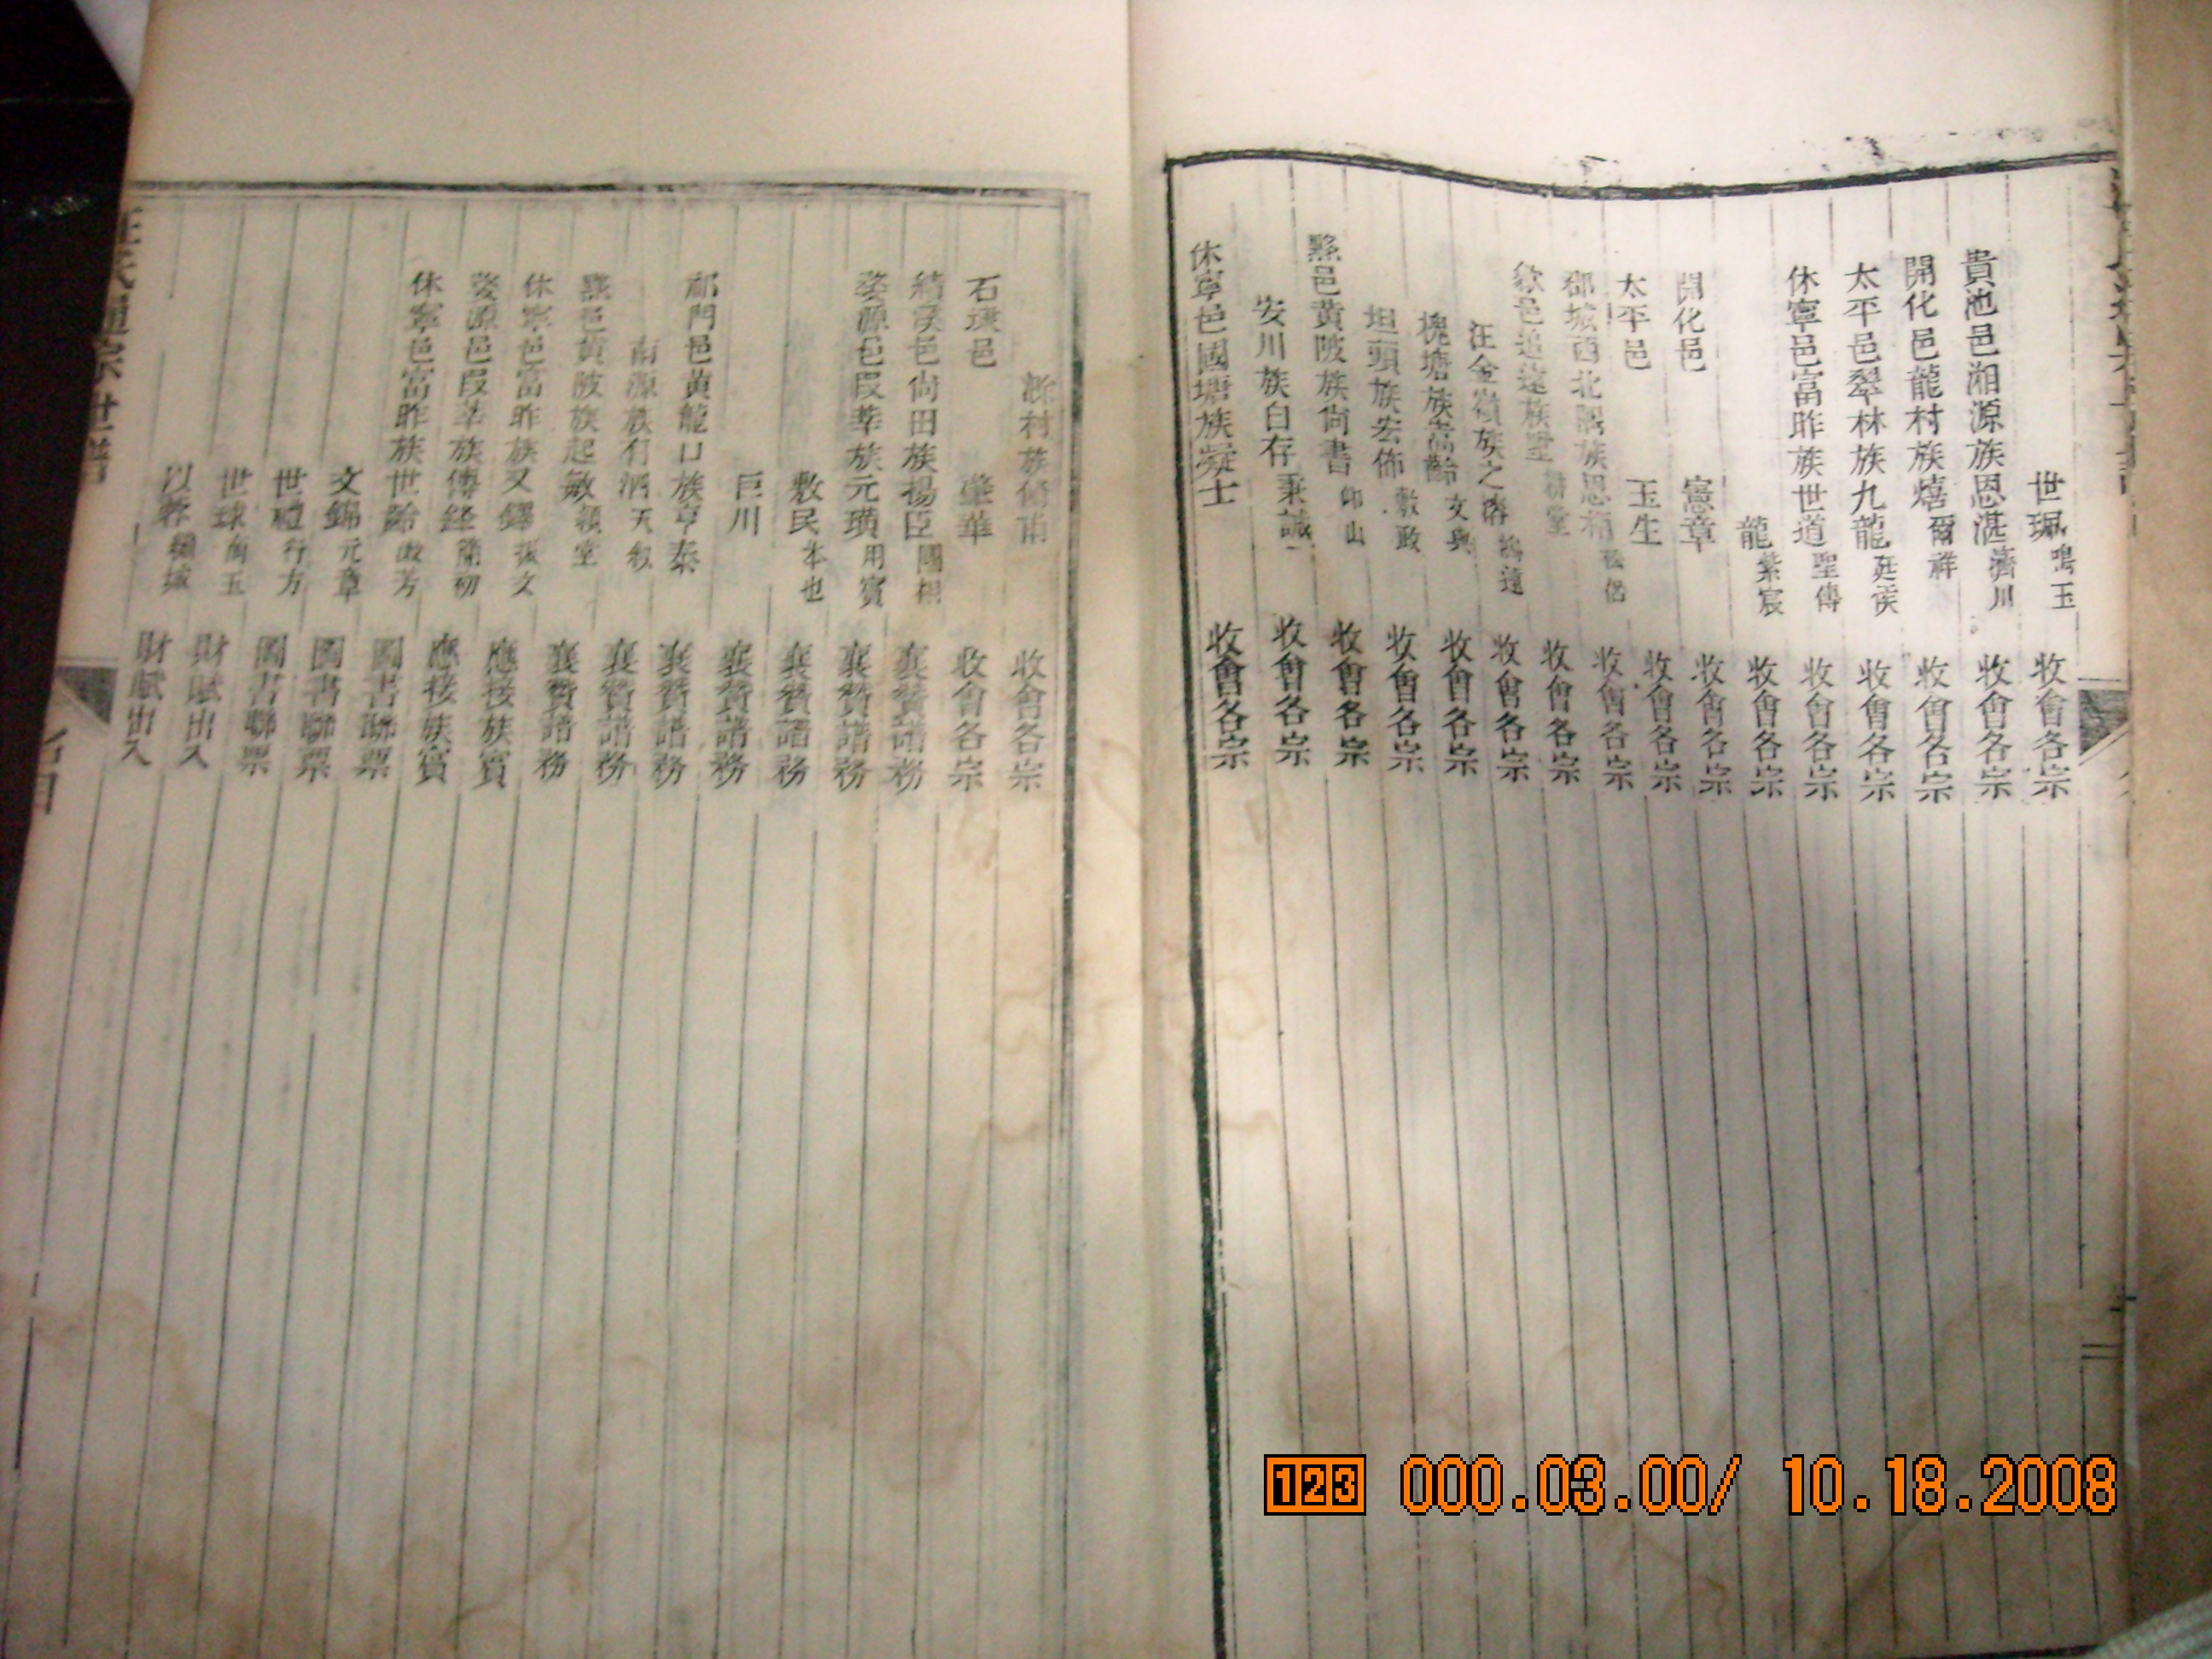 世珮鳴玉 收會各宗
貴池邑湘源族恩湛濟川 收會各宗
開化邑龍村族熺爾祥 收會各宗
太平邑翠林族九龍廷侯 收會各宗
休寧邑富昨族世道聖傳 收會各宗
龍紫宸 收會各宗
開化邑 憲章 收會各宗
太平邑 玉生 收會各宗
郡城西北隅族思 收會各宗
歙邑追遠族 耕堂 收會各宗
汪金嶺族之 收會各宗
槐塘族嵩齡文興 收會各宗
坦頭族宏佈敷政 收會各宗
黟邑黃陂族尙書印山 收會各宗
安川族自存秉誠 收會各宗
休寧邑國塘族凝士 收會各宗
村族 收會各宗
石埭邑 肇華 收會各宗
績溪邑尙田族揚臣 襄贊譜務
婺源邑段莘族元璜用賓 襄贊譜務
敷民本也 襄贊譜務
巨川 襄贊譜務
祁門邑黃龍口族亨泰 襄贊譜務
南源族 天敘 襄贊譜務
黟邑黃陂族起敏 堂 襄贊譜務
休寧邑富昨族又鐸振文 襄贊譜務
婺源邑段莘族傳 應接族賓
休寧邑富昨族世 方 應接族賓
文錦元章 圖書聯票
世禮行方 圖書聯票
世球 玉 圖書聯票
以 財賦出入
財賦出入
汪氏通宗世譜
名目
123 000.03.00/ 10.18.2008